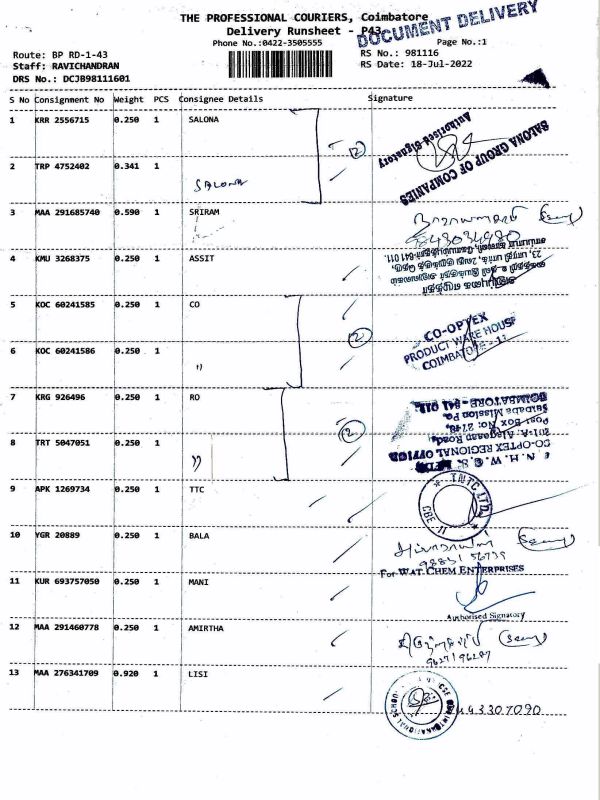 THE PROFESSIONAL COURIERS, Coimbatore
Delivery Runsheet - P43
DOCUMENT DELIVERY
Phone No.:0422-3505555
Page No.:1
Route: BP RD-1-43
RS No.: 981116
Staff: RAVICHANDRAN
RS Date: 18-Jul-2022
DRS No.: DCJB98111601
S No Consignment No Weight PCS Consignee Details Signature
1 KRR 2556715 0.250 1 SALONA
Authorised Signatory
SALONA GROUP OF COMPANIES
2
2 TRP 4752402 0.341 1
SALONA
3 MAA 291685740 0.590 1 SRIRAM
4 KMU 3268375 0.250 1 ASSIT
5 KOC 60241585 0.250 1 CO
CO-OPTEX
PRODUCT WARE HOUSE
COIMBATORE - 11
2
6 KOC 60241586 0.250 1
"
7 KRG 926496 0.250 1 RO
2
8 TRT 5047051 0.250 1
"
CO-OPTEX REGIONAL OFFICE
Post Box No: 2748,
COIMBATORE - 641 011.
9 APK 1269734 0.250 1 TTC
TNTC LTD.
CBE-11
10 YGR 20889 0.250 1 BALA
98831 56739
For WAT CHEM ENTERPRISES
11 KUR 693757050 0.250 1 MANI
Authorised Signatory
12 MAA 291460778 0.250 1 AMIRTHA
9627196287
13 MAA 276341709 0.920 1 LISI